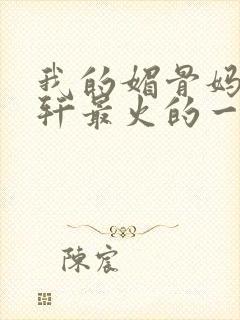 我的媚骨妈
轩最火的一
陳宸